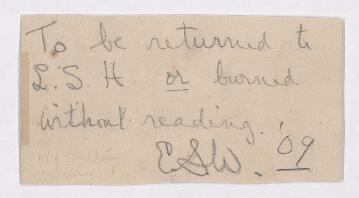 To be returned to
L. S. H. or burned
without reading.
ESW. '09